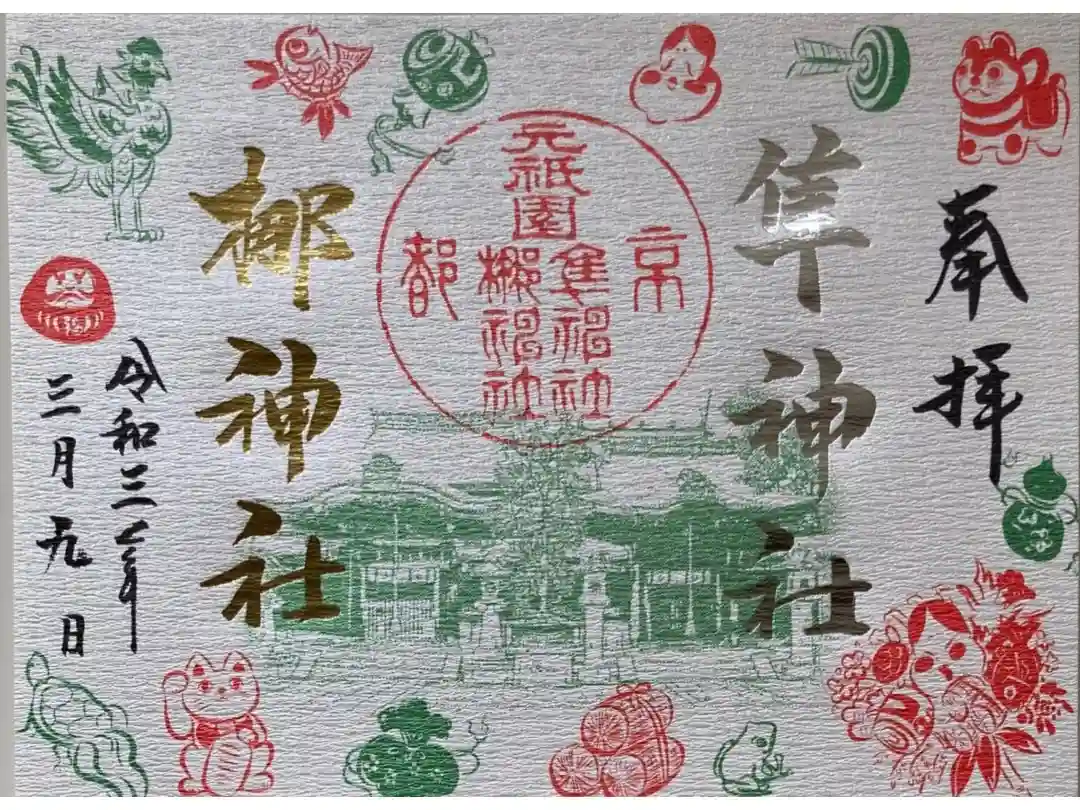 奉拝
隼神社
京
元祇園
隼神社
梛神社
都
梛神社
令和三年
三月九日